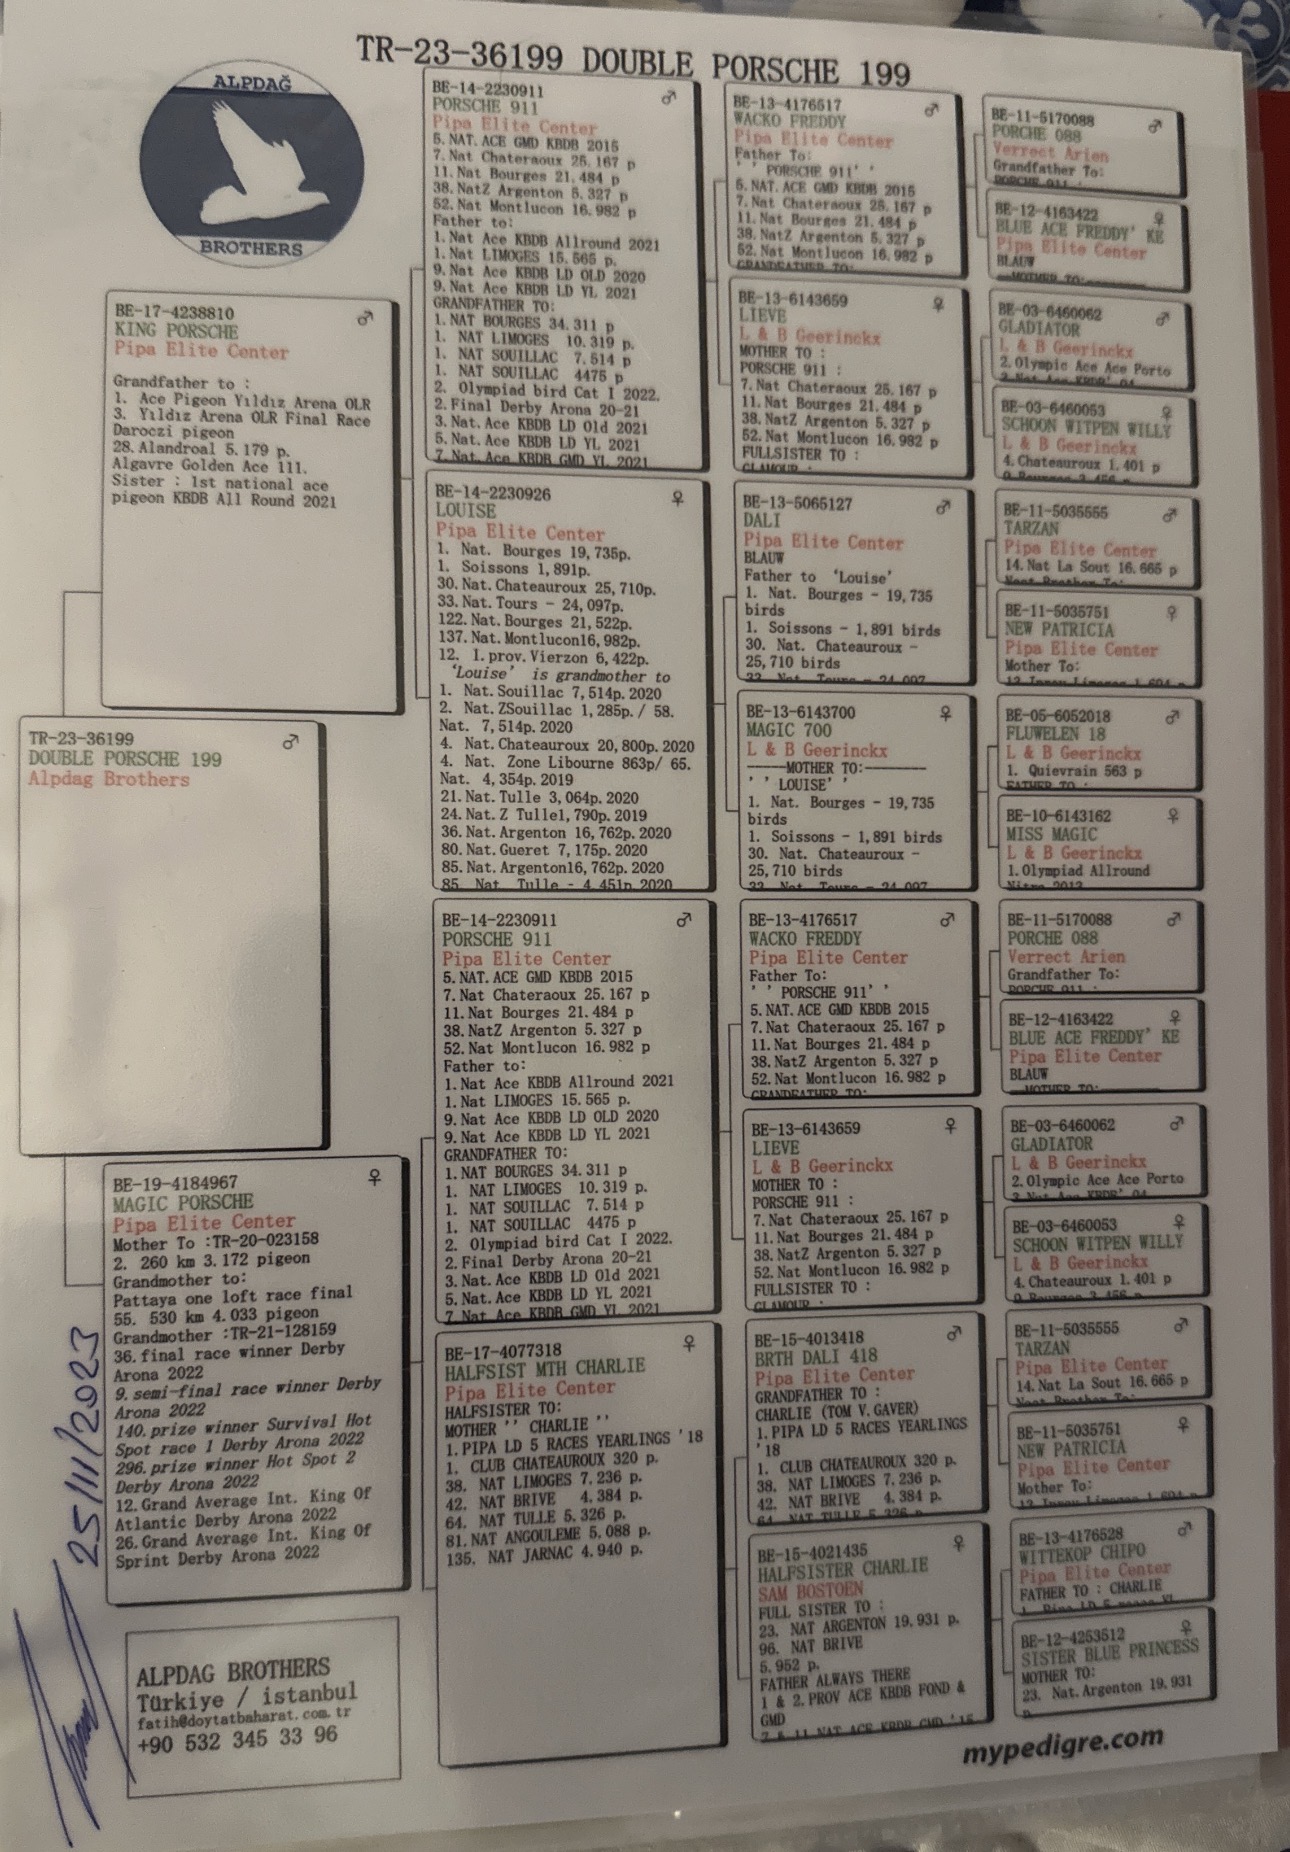 TR-23-36199 DOUBLE PORSCHE 199
ALPDAĞ
BROTHERS
TR-23-36199 ♂
DOUBLE PORSCHE 199
Alpdag Brothers
BE-17-4238810 ♂
KING PORSCHE
Pipa Elite Center
Grandfather to :
1. Ace Pigeon Yıldız Arena OLR
3. Yıldız Arena OLR Final Race
Daroczi pigeon
28. Alandroal 5.179 p.
Algavre Golden Ace 111.
Sister : 1st national ace
pigeon KBDB All Round 2021
BE-19-4184967 ♀
MAGIC PORSCHE
Pipa Elite Center
Mother To :TR-20-023158
2. 260 km 3.172 pigeon
Grandmother to:
Pattaya one loft race final
55. 530 km 4.033 pigeon
Grandmother :TR-21-128159
36. final race winner Derby
Arona 2022
9. semi-final race winner Derby
Arona 2022
140. prize winner Survival Hot
Spot race 1 Derby Arona 2022
296. prize winner Hot Spot 2
Derby Arona 2022
12. Grand Average Int. King Of
Atlantic Derby Arona 2022
26. Grand Average Int. King Of
Sprint Derby Arona 2022
25/11/2023
ALPDAG BROTHERS
Türkiye / istanbul
fatih@doytatbaharat.com.tr
+90 532 345 33 96
BE-14-2230911 ♂
PORSCHE 911
Pipa Elite Center
5. NAT. ACE GMD KBDB 2015
7. Nat Chateraoux 25.167 p
11. Nat Bourges 21.484 p
38. NatZ Argenton 5.327 p
52. Nat Montlucon 16.982 p
Father to:
1. Nat Ace KBDB Allround 2021
1. Nat LIMOGES 15.565 p.
9. Nat Ace KBDB LD OLD 2020
9. Nat Ace KBDB LD YL 2021
GRANDFATHER TO:
1. NAT BOURGES 34.311 p
1. NAT LIMOGES 10.319 p.
1. NAT SOUILLAC 7.514 p
1. NAT SOUILLAC 4475 p
2. Olympiad bird Cat I 2022.
2. Final Derby Arona 20-21
3. Nat. Ace KBDB LD Old 2021
5. Nat. Ace KBDB LD YL 2021
7. Nat. Ace KBDB GMD YL 2021
BE-14-2230926 ♀
LOUISE
Pipa Elite Center
1. Nat. Bourges 19,735p.
1. Soissons 1,891p.
30. Nat. Chateauroux 25,710p.
33. Nat. Tours - 24,097p.
122. Nat. Bourges 21,522p.
137. Nat. Montlucon16,982p.
12. 1. prov. Vierzon 6,422p.
'Louise' is grandmother to
1. Nat. Souillac 7,514p. 2020
2. Nat. ZSouillac 1,285p. / 58.
Nat. 7,514p. 2020
4. Nat. Chateauroux 20,800p. 2020
4. Nat. Zone Libourne 863p/ 65.
Nat. 4,354p. 2019
21. Nat. Tulle 3,064p. 2020
24. Nat. Z Tulle1,790p. 2019
36. Nat. Argenton 16,762p. 2020
80. Nat. Gueret 7,175p. 2020
85. Nat. Argenton16,762p. 2020
85. Nat. Tulle - 4,451p. 2020
BE-14-2230911 ♂
PORSCHE 911
Pipa Elite Center
5. NAT. ACE GMD KBDB 2015
7. Nat Chateraoux 25.167 p
11. Nat Bourges 21.484 p
38. NatZ Argenton 5.327 p
52. Nat Montlucon 16.982 p
Father to:
1. Nat Ace KBDB Allround 2021
1. Nat LIMOGES 15.565 p.
9. Nat Ace KBDB LD OLD 2020
9. Nat Ace KBDB LD YL 2021
GRANDFATHER TO:
1. NAT BOURGES 34.311 p
1. NAT LIMOGES 10.319 p.
1. NAT SOUILLAC 7.514 p
1. NAT SOUILLAC 4475 p
2. Olympiad bird Cat I 2022.
2. Final Derby Arona 20-21
3. Nat. Ace KBDB LD Old 2021
5. Nat. Ace KBDB LD YL 2021
7. Nat Ace KBDB GMD YL 2021
BE-17-4077318 ♀
HALFSIST MTH CHARLIE
Pipa Elite Center
HALFSISTER TO:
MOTHER '' CHARLIE ''
1. PIPA LD 5 RACES YEARLINGS '18
1. CLUB CHATEAUROUX 320 p.
38. NAT LIMOGES 7.236 p.
42. NAT BRIVE 4.384 p.
64. NAT TULLE 5.326 p.
81. NAT ANGOULEME 5.088 p.
135. NAT JARNAC 4.940 p.
BE-13-4176517 ♂
WACKO FREDDY
Pipa Elite Center
Father To:
' ' PORSCHE 911' '
5. NAT. ACE GMD KBDB 2015
7. Nat Chateraoux 25.167 p
11. Nat Bourges 21.484 p
38. NatZ Argenton 5.327 p
52. Nat Montlucon 16.982 p
GRANDFATHER TO:
BE-13-6143659 ♀
LIEVE
L & B Geerinckx
MOTHER TO :
PORSCHE 911 :
7. Nat Chateraoux 25.167 p
11. Nat Bourges 21.484 p
38. NatZ Argenton 5.327 p
52. Nat Montlucon 16.982 p
FULLSISTER TO :
GLAMOUR :
BE-13-5065127 ♂
DALI
Pipa Elite Center
BLAUW
Father to 'Louise'
1. Nat. Bourges - 19,735
birds
1. Soissons - 1,891 birds
30. Nat. Chateauroux -
25,710 birds
33. Nat. Tours - 24,097
BE-13-6143700 ♀
MAGIC 700
L & B Geerinckx
-----MOTHER TO:--------
' ' LOUISE' '
1. Nat. Bourges - 19,735
birds
1. Soissons - 1,891 birds
30. Nat. Chateauroux -
25,710 birds
33. Nat. Tours - 24,097
BE-13-4176517 ♂
WACKO FREDDY
Pipa Elite Center
Father To:
' ' PORSCHE 911' '
5. NAT. ACE GMD KBDB 2015
7. Nat Chateraoux 25.167 p
11. Nat Bourges 21.484 p
38. NatZ Argenton 5.327 p
52. Nat Montlucon 16.982 p
GRANDFATHER TO:
BE-13-6143659 ♀
LIEVE
L & B Geerinckx
MOTHER TO :
PORSCHE 911 :
7. Nat Chateraoux 25.167 p
11. Nat Bourges 21.484 p
38. NatZ Argenton 5.327 p
52. Nat Montlucon 16.982 p
FULLSISTER TO :
GLAMOUR :
BE-15-4013418 ♂
BRTH DALI 418
Pipa Elite Center
GRANDFATHER TO :
CHARLIE (TOM V. GAVER)
1. PIPA LD 5 RACES YEARLINGS
'18
1. CLUB CHATEAUROUX 320 p.
38. NAT LIMOGES 7.236 p.
42. NAT BRIVE 4.384 p.
64. NAT TULLE 5.326 p.
BE-15-4021435 ♀
HALFSISTER CHARLIE
SAM BOSTOEN
FULL SISTER TO :
23. NAT ARGENTON 19.931 p.
96. NAT BRIVE
5.952 p.
FATHER ALWAYS THERE
1 & 2. PROV ACE KBDB FOND &
GMD
7 & 11 NAT ACE KBDB GMD '15
BE-11-5170088 ♂
PORCHE 088
Verrect Arien
Grandfather To:
PORCHE 911 :
BE-12-4163422 ♀
BLUE ACE FREDDY' KE
Pipa Elite Center
BLAUW
--MOTHER TO:--------
BE-03-6460062 ♂
GLADIATOR
L & B Geerinckx
2. Olympic Ace Ace Porto
3. Nat Ace KBDB' 04
BE-03-6460053 ♀
SCHOON WITPEN WILLY
L & B Geerinckx
4. Chateauroux 1.401 p
9. Bourges 3.456 p
BE-11-5035555 ♂
TARZAN
Pipa Elite Center
14. Nat La Sout 16.665 p
Nest Brother To:
BE-11-5035751 ♀
NEW PATRICIA
Pipa Elite Center
Mother To:
BE-05-6052018 ♂
FLUWELEN 18
L & B Geerinckx
1. Quievrain 563 p
FATHER TO :
BE-10-6143162 ♀
MISS MAGIC
L & B Geerinckx
1. Olympiad Allround
Nitra 2013
BE-11-5170088 ♂
PORCHE 088
Verrect Arien
Grandfather To:
PORCHE 911 :
BE-12-4163422 ♀
BLUE ACE FREDDY' KE
Pipa Elite Center
BLAUW
--MOTHER TO:--------
BE-03-6460062 ♂
GLADIATOR
L & B Geerinckx
2. Olympic Ace Ace Porto
3. Nat Ace KBDB' 04
BE-03-6460053 ♀
SCHOON WITPEN WILLY
L & B Geerinckx
4. Chateauroux 1.401 p
9. Bourges 3.456 p
BE-11-5035555 ♂
TARZAN
Pipa Elite Center
14. Nat La Sout 16.665 p
Nest Brother To:
BE-11-5035751 ♀
NEW PATRICIA
Pipa Elite Center
Mother To:
BE-13-4176528 ♂
WITTEKOP CHIPO
Pipa Elite Center
FATHER TO : CHARLIE
BE-12-4253512 ♀
SISTER BLUE PRINCESS
MOTHER TO:
23. Nat. Argenton 19,931
p.
mypedigre.com